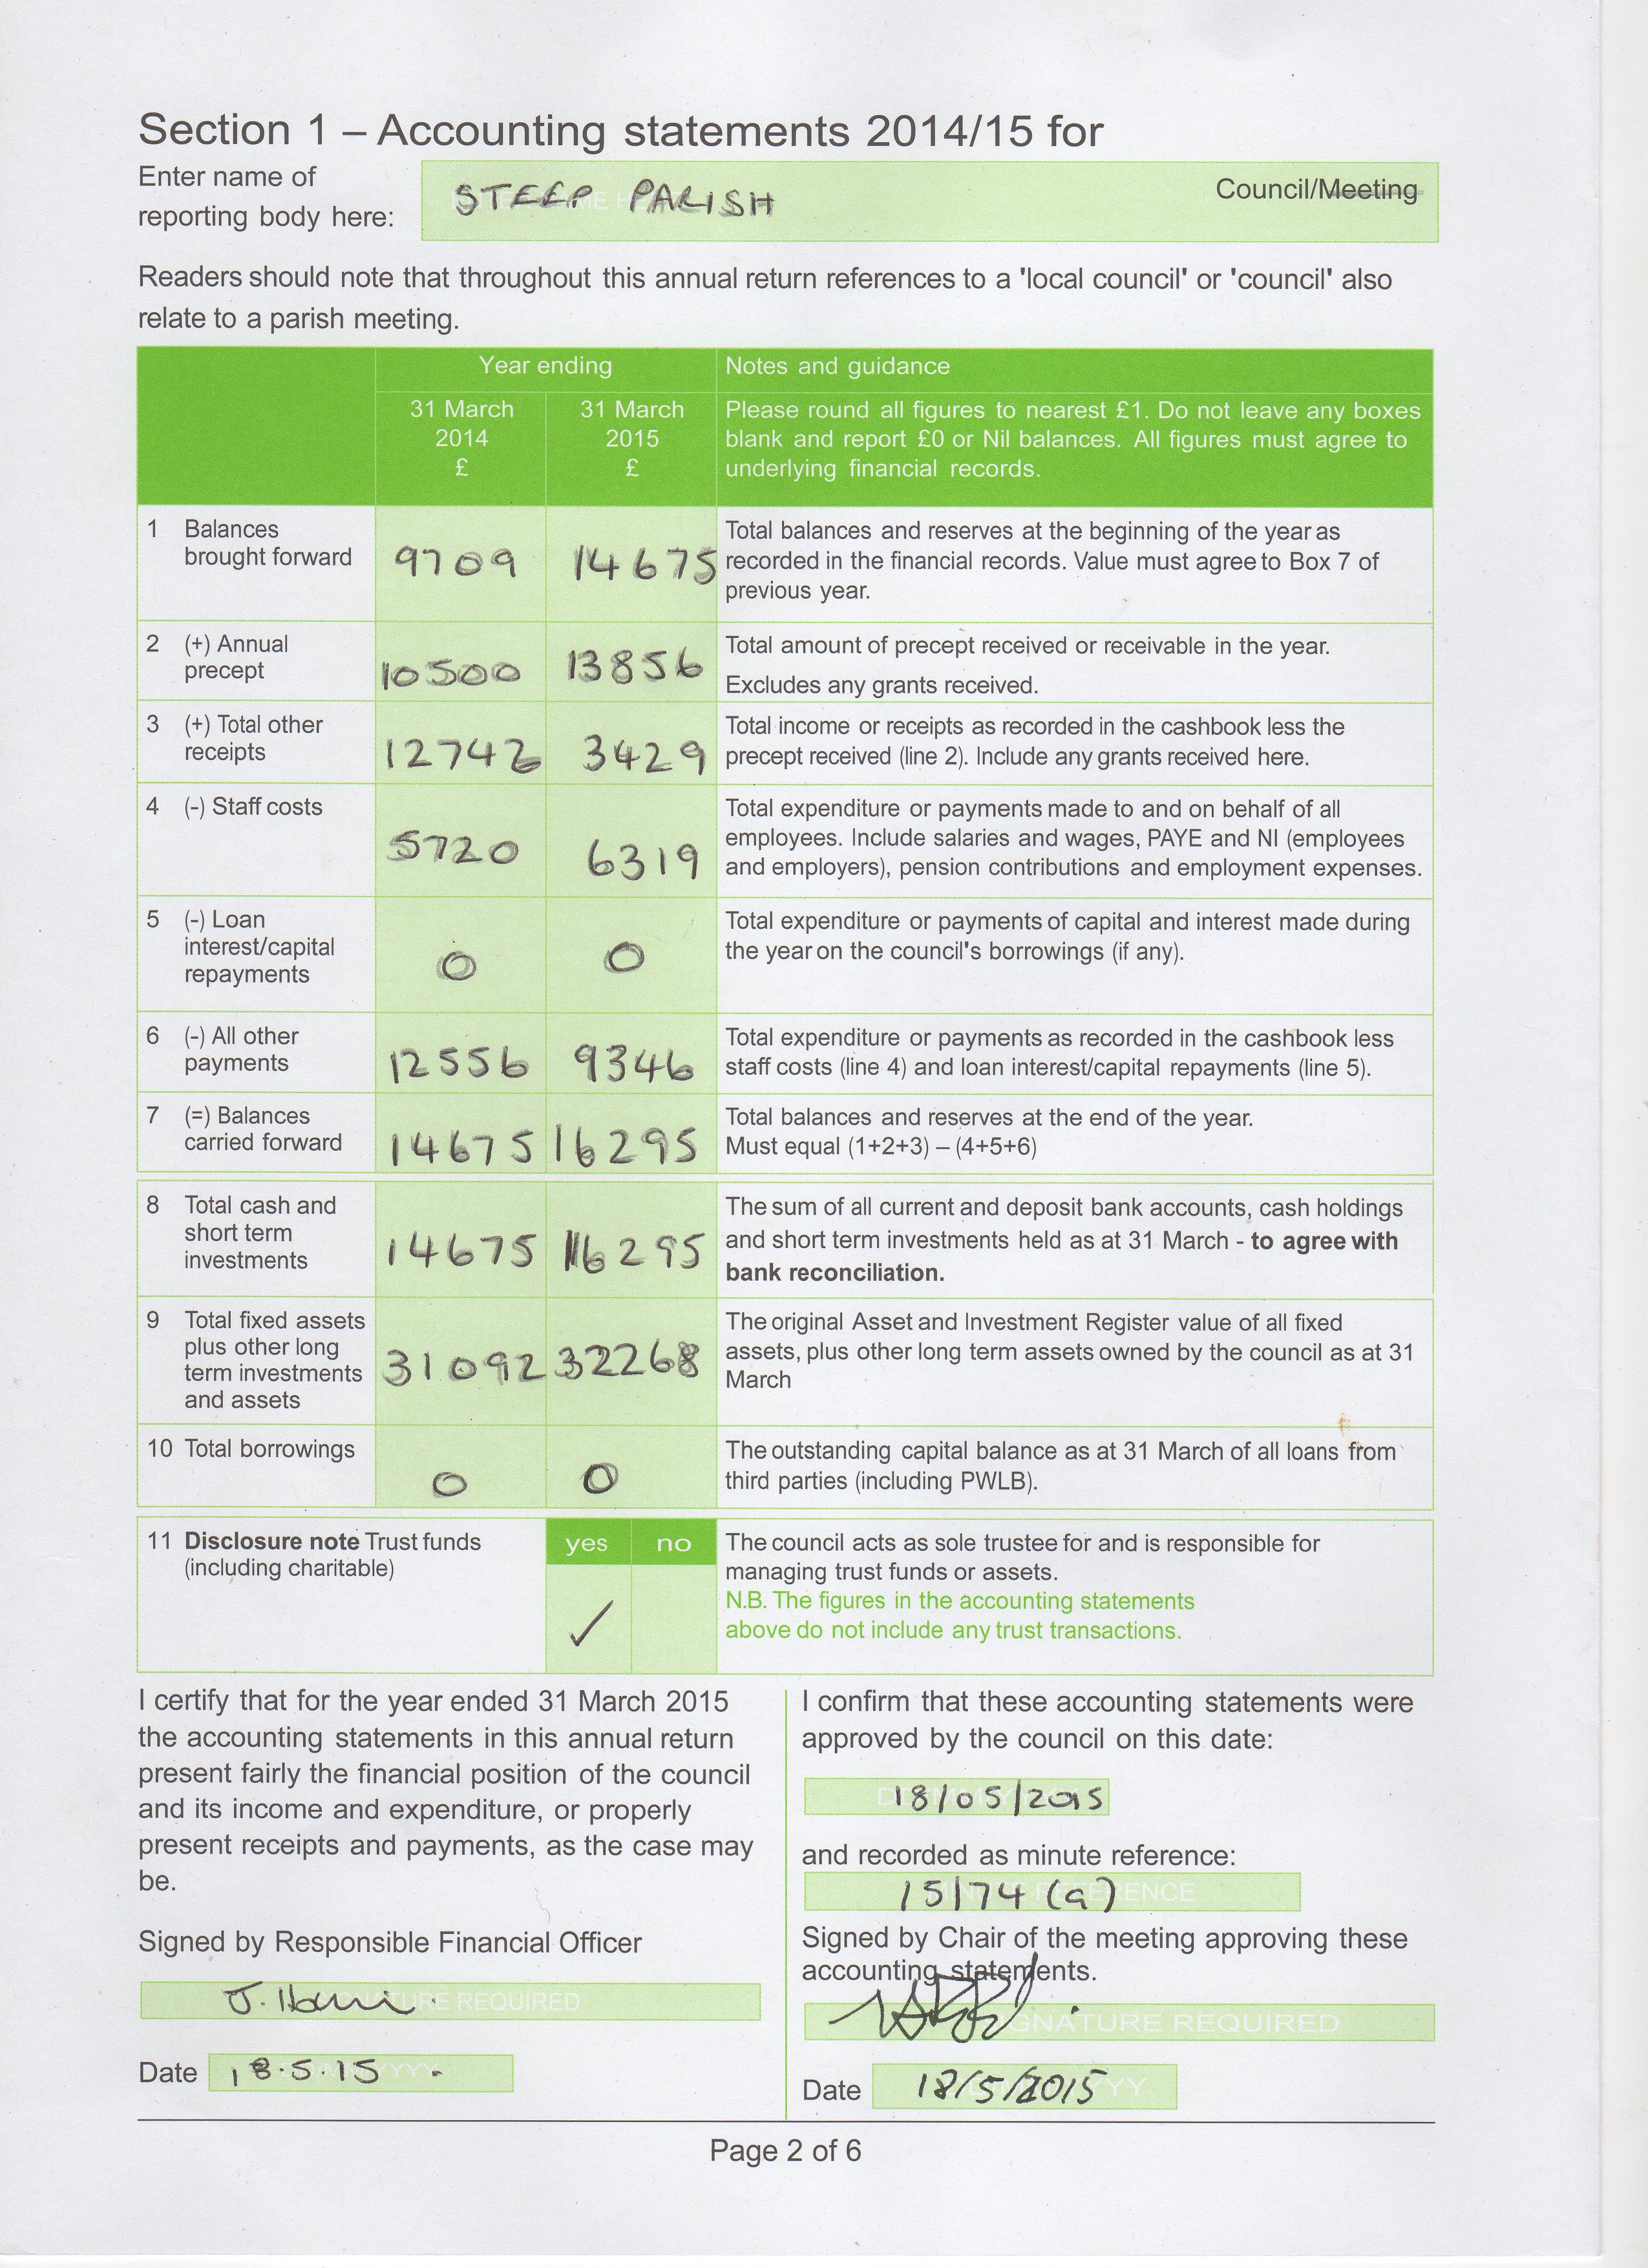 Section 1 – Accounting statements 2014/15 for
Enter name of
reporting body here:
STEEP PARISH
Council/Meeting
Readers should note that throughout this annual return references to a 'local council' or 'council' also
relate to a parish meeting.
Year ending
Notes and guidance
31 March
2014
£
31 March
2015
£
Please round all figures to nearest £1. Do not leave any boxes
blank and report £0 or Nil balances. All figures must agree to
underlying financial records.
1 Balances
brought forward
9709
14675
Total balances and reserves at the beginning of the year as
recorded in the financial records. Value must agree to Box 7 of
previous year.
2 (+) Annual
precept
10500
13856
Total amount of precept received or receivable in the year.
Excludes any grants received.
3 (+) Total other
receipts
12742
3429
Total income or receipts as recorded in the cashbook less the
precept received (line 2). Include any grants received here.
4 (-) Staff costs
5720
6319
Total expenditure or payments made to and on behalf of all
employees. Include salaries and wages, PAYE and NI (employees
and employers), pension contributions and employment expenses.
5 (-) Loan
interest/capital
repayments
0
0
Total expenditure or payments of capital and interest made during
the year on the council's borrowings (if any).
6 (-) All other
payments
12556
9346
Total expenditure or payments as recorded in the cashbook less
staff costs (line 4) and loan interest/capital repayments (line 5).
7 (=) Balances
carried forward
14675
16295
Total balances and reserves at the end of the year.
Must equal (1+2+3) – (4+5+6)
8 Total cash and
short term
investments
14675
16295
The sum of all current and deposit bank accounts, cash holdings
and short term investments held as at 31 March - to agree with
bank reconciliation.
9 Total fixed assets
plus other long
term investments
and assets
31092
32268
The original Asset and Investment Register value of all fixed
assets, plus other long term assets owned by the council as at 31
March
10 Total borrowings
0
0
The outstanding capital balance as at 31 March of all loans from
third parties (including PWLB).
11 Disclosure note Trust funds
(including charitable)
yes
no
✓
The council acts as sole trustee for and is responsible for
managing trust funds or assets.
N.B. The figures in the accounting statements
above do not include any trust transactions.
I certify that for the year ended 31 March 2015
the accounting statements in this annual return
present fairly the financial position of the council
and its income and expenditure, or properly
present receipts and payments, as the case may
be.
Signed by Responsible Financial Officer
SIGNATURE REQUIRED
Date 18.5.15
I confirm that these accounting statements were
approved by the council on this date:
18/05/2015
and recorded as minute reference:
15/74 (a)
Signed by Chair of the meeting approving these
accounting statements.
SIGNATURE REQUIRED
Date 18/5/2015
Page 2 of 6